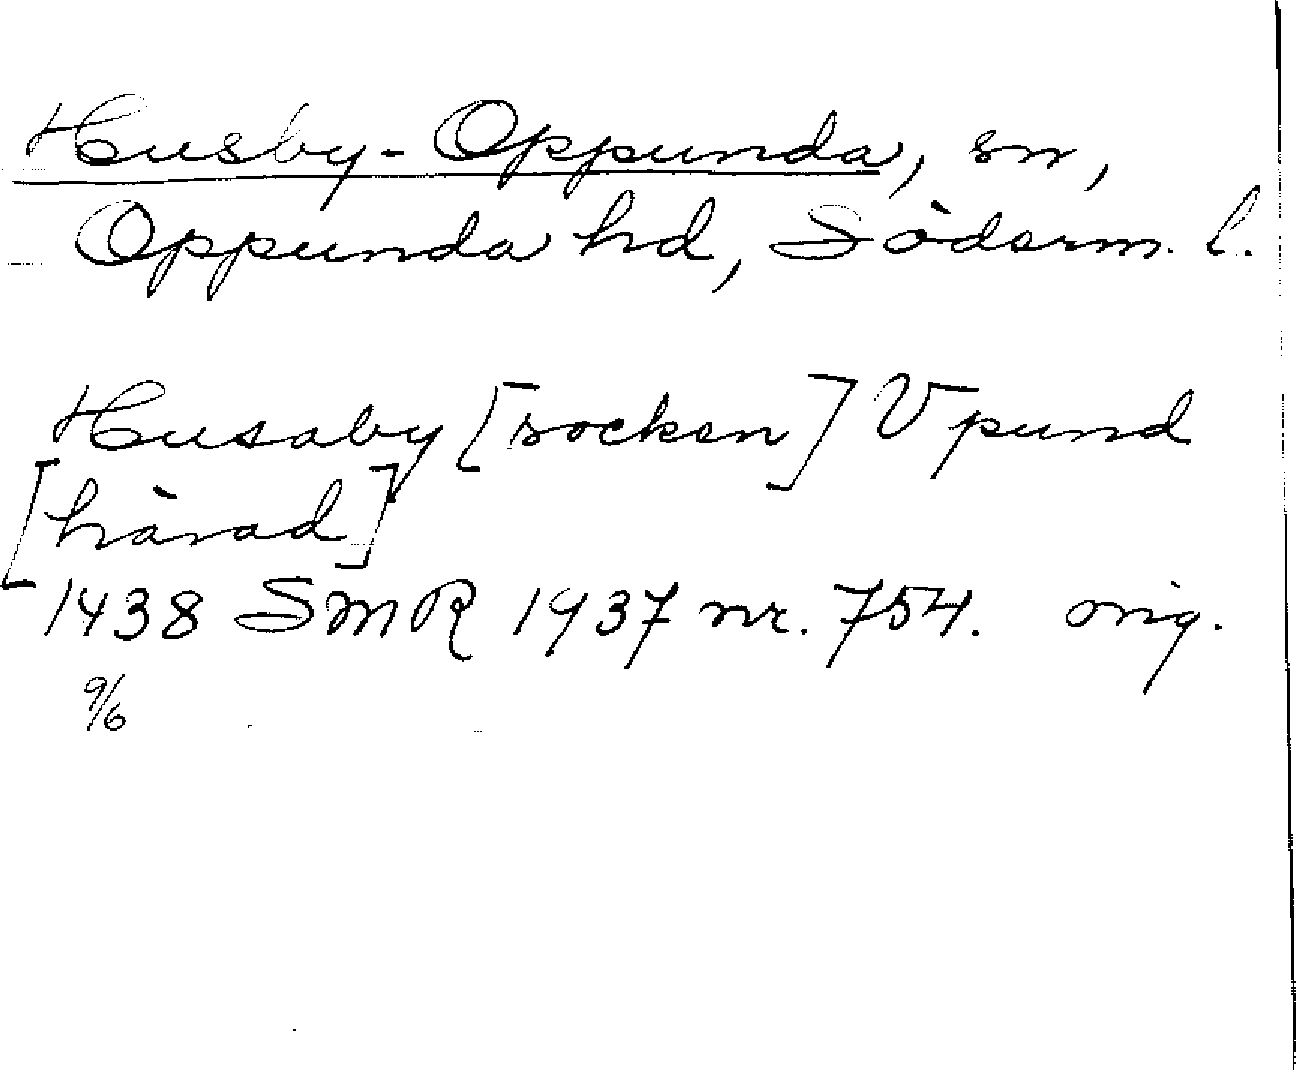 Husby-Oppunda, sn,
Oppunda hd, Söderm. l.
Husaby [socken] Vpund
[härad]
1438 SMR 1937 nr. 754. orig.
9/6